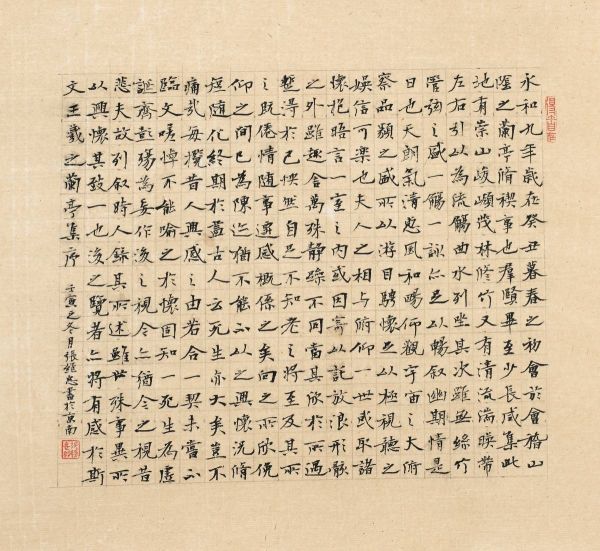 永和九年歲在癸丑暮春之初會於會稽山
陰之蘭亭脩禊事也群賢畢至少長咸集此
地有崇山峻嶺茂林修竹又有清流湍暎帶
左右引以為流觴曲水列坐其次雖無絲竹
管弦之盛一觴一詠亦足以暢叙幽期情是
日也天朗氣清惠風和暢仰觀宇宙之大俯
察品類之盛所以游目騁懷足以極視聽之
娛信可樂也夫人之相与俯仰一世或取諸
懷抱晤言一室之內或因寄以託放浪形骸
之外雖趣舍萬殊靜躁不同當其欣於所遇
蹔得於己怏然自足不知老之將至及其所
之既倦情隨事遷感慨係之矣向之所欣俛
仰之間已為陳迹猶不能不以之興懷況脩
短隨化終期於盡古人云死生亦大矣豈不
痛哉每攬昔人興感之由若合一契未嘗不
臨文嗟悼不能喻之於懷固知一死生為虛
誕齊彭殤為妄作後之視今亦猶今之視昔
悲夫故列叙時人錄其所述雖世殊事異所
以興懷其致一也後之覽者亦將有感於斯
文王羲之蘭亭集序
壬寅之冬月張繼忠書於京南